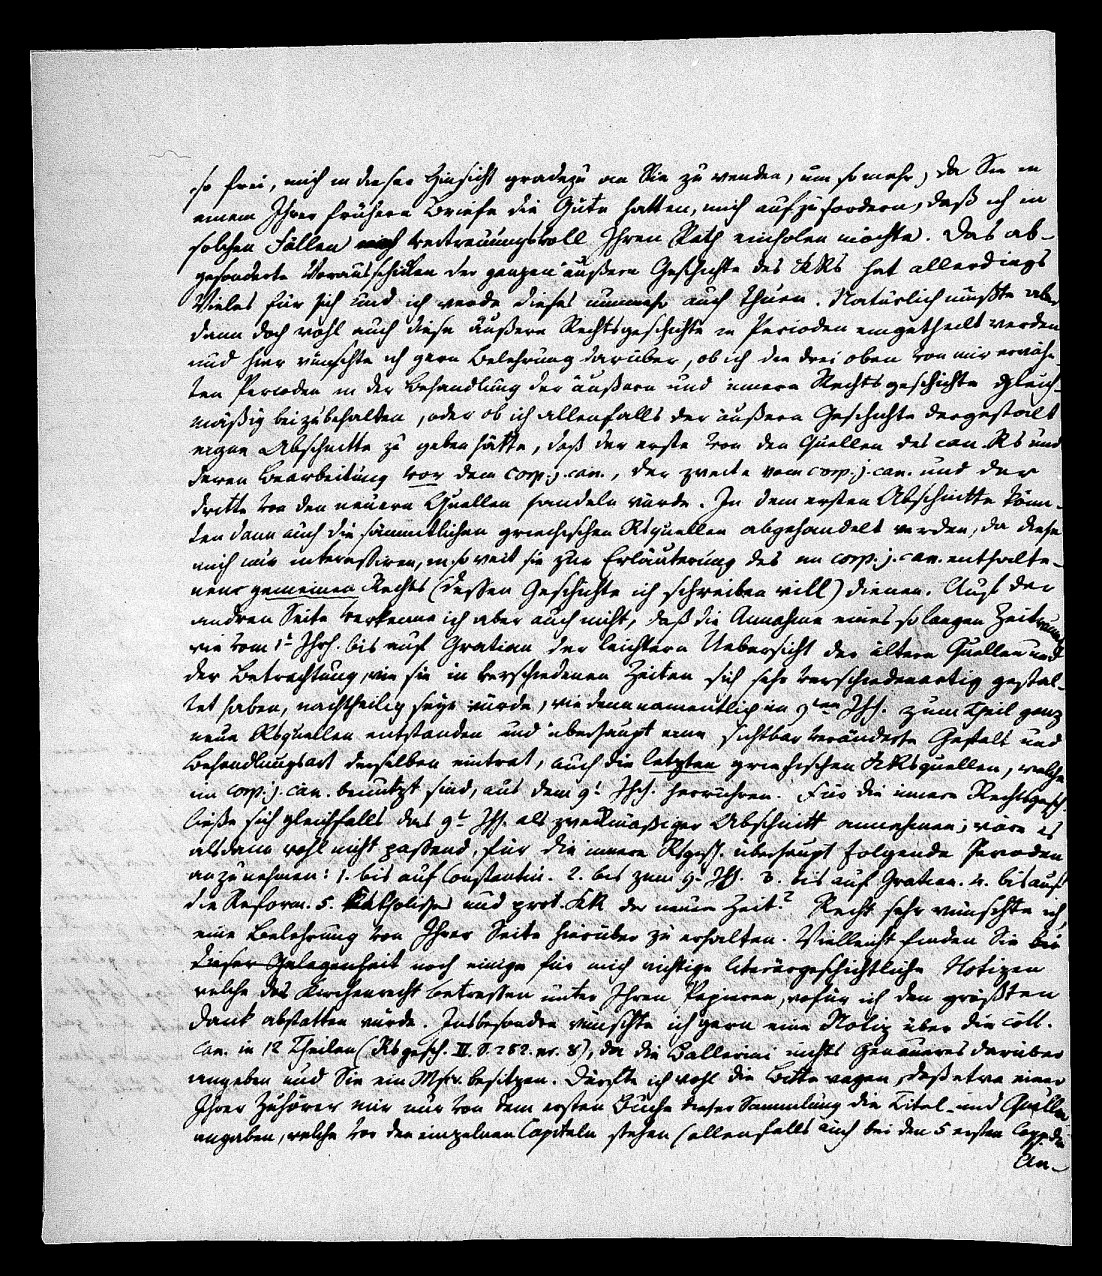 so frei, mich in dieser Hinsicht gradezu an Sie zu wenden, um so mehr, da Sie in
einem Ihrer frühern Briefe die Güte hatten, mich aufzufordern, daß ich in
solchen Fällen vertrauungsvoll Ihren Rath einholen möchte. Das ab-
gesonderte Vorausschicken der ganzen äußern Geschichte des KRs hat allerdings
Vieles für sich und ich werde dieses nunmehr auch thuen. Natürlich müßte aber
dann doch wohl auch diese äußere Rechtsgeschichte in Perioden eingetheilt werden
und hier wünschte ich gern Belehrung darüber, ob ich die drei oben von mir erwähn-
ten Perioden in der Behandlung der äußern und innern Rechtsgeschichte gleich-
mäßig beizubehalten, oder ob ich allenfalls der äußern Geschichte dergestalt
eigne Abschnitte zu geben hätte, daß der erste von den Quellen des can. Rs und
deren Bearbeitung vor dem corp. j. can., der zweite vom corp. j. can. und der
dritte von den neuern Quellen handeln würde. In dem ersten Abschnitte könn-
ten dann auch die sämmtlichen griechischen Rsquellen abgehandelt werden, da diese
mich nur interessiren, in so weit sie zur Erläuterung des im corp. j. can. enthalte-
nen gemeinen Rechts (dessen Geschichte ich schreiben will) dienen. Auf der
andren Seite verkenne ich aber auch nicht, daß die Annahme eines so langen Zeitraums
wie vom 1t Jhrh. bis auf Gratian der leichtern Uebersicht der ältern Quellen und
der Betrachtung, wie sie in verschiedenen Zeiten sich sehr verschiedenartig gestal-
tet haben, nachtheilig seyn würde, wie denn namentlich im 9ten Jhh. zum Theil ganz
neue Rsquellen entstanden und überhaupt eine sichtbar veränderte Gestalt und
Behandlungsart derselben eintrat, auch die letzten griechischen KRsquellen, welche
im corp. j. can. benutzt sind, aus dem 9t Jhh. herrühren. Für die innere Rechtsgesch.
ließe sich gleichfalls das 9te Jhh. als zweckmäßiger Abschnitt annehmen; wäre es
alsdann wohl nicht passend, für die innere Rsgesch. überhaupt folgende Perioden
anzunehmen: 1. bis auf Constantin. 2. bis zum 9. Jhh. 3. bis auf Gratian. 4. bis auf
die Reform. 5. Katholisches und prot. KR der neuern Zeit? Recht sehr wünschte ich,
eine Belehrung von Ihrer Seite hierüber zu erhalten. Vielleicht finden Sie bei
dieser Gelegenheit noch einige für mich wichtige literärgeschichtliche Notizen
welche das Kirchenrecht betreffen unter Ihren Papieren, wofür ich den größten
Dank abstatten würde. Insbesondre wünschte ich gern eine Notiz über die coll.
can. in 12 Theilen (Rsgesch. II. S. 282. nr. 8), da die Ballerini nichts Genaueres darüber
angeben und Sie ein Mscr. besitzen. Dürfte ich wohl die Bitte wagen, daß etwa einer
Ihrer Zuhörer mir nur von dem ersten Buche dieser Sammlung die Titel- und Quellen-
angaben, welche vor den einzelnen Capiteln stehen (allenfalls auch bei den 5 ersten Capp. die
An-